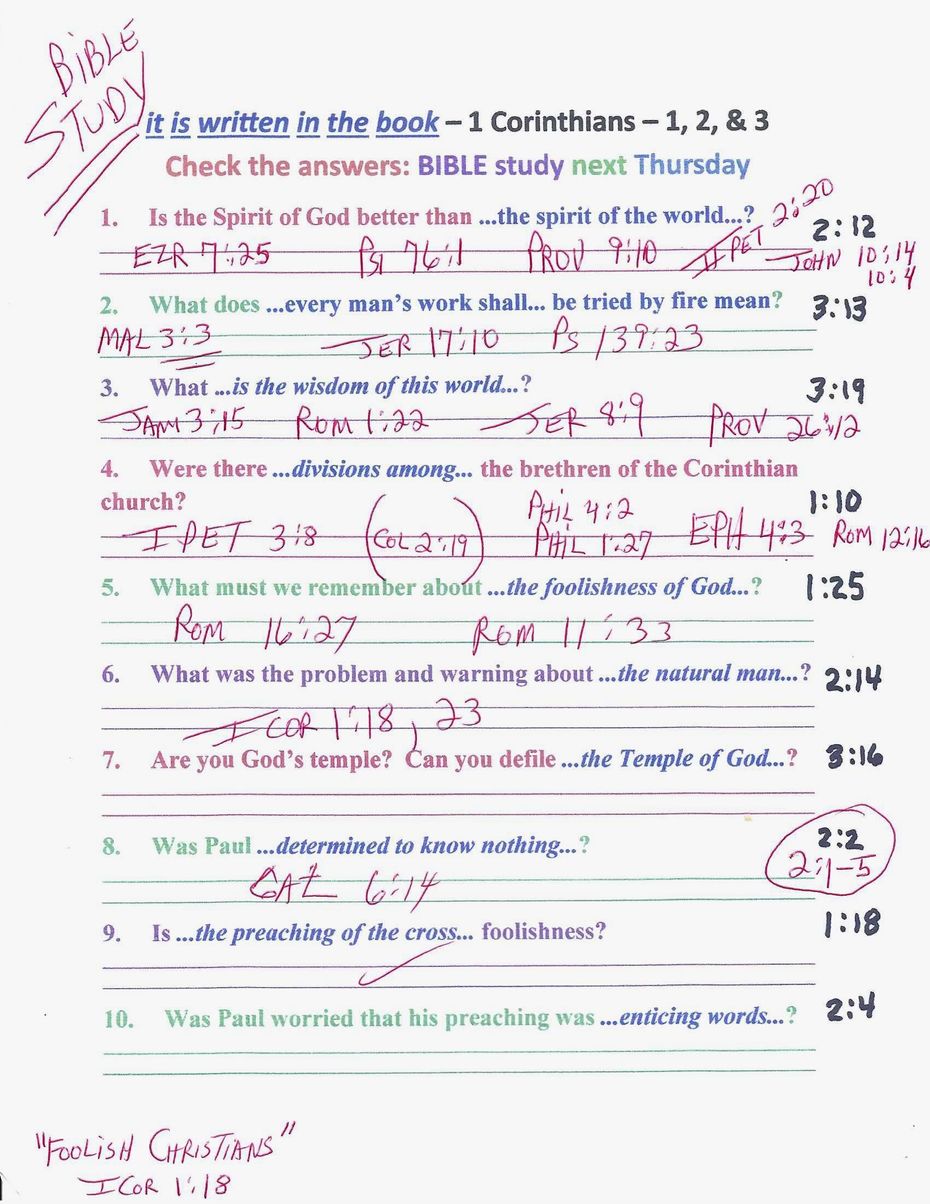 BIBLE
STUDY
it is written in the book – 1 Corinthians – 1, 2, & 3
Check the answers: BIBLE study next Thursday
1. Is the Spirit of God better than ...the spirit of the world...? 2:12
EZR 7:25 Ps 76:1 PROV 9:10 II PET 2:20 JOHN 10:14
10:4
2. What does ...every man's work shall... be tried by fire mean? 3:13
MAL 3:3 JER 17:10 Ps 139:23
3. What ...is the wisdom of this world...? 3:19
JAM 3:15 ROM 1:22 JER 8:9 PROV 26:12
4. Were there ...divisions among... the brethren of the Corinthian
church? 1:10
PHIL 4:2
I PET 3:8 (COL 2:19) PHIL 1:27 EPH 4:3 ROM 12:16
5. What must we remember about ...the foolishness of God...? 1:25
ROM 16:27 ROM 11:33
6. What was the problem and warning about ...the natural man...? 2:14
I COR 1:18, 23
7. Are you God's temple? Can you defile ...the Temple of God...? 3:16
8. Was Paul ...determined to know nothing...? 2:2
2:1-5
GAL 6:14
9. Is ...the preaching of the cross... foolishness? 1:18
10. Was Paul worried that his preaching was ...enticing words...? 2:4
"FOOLISH CHRISTIANS"
I COR 1:18